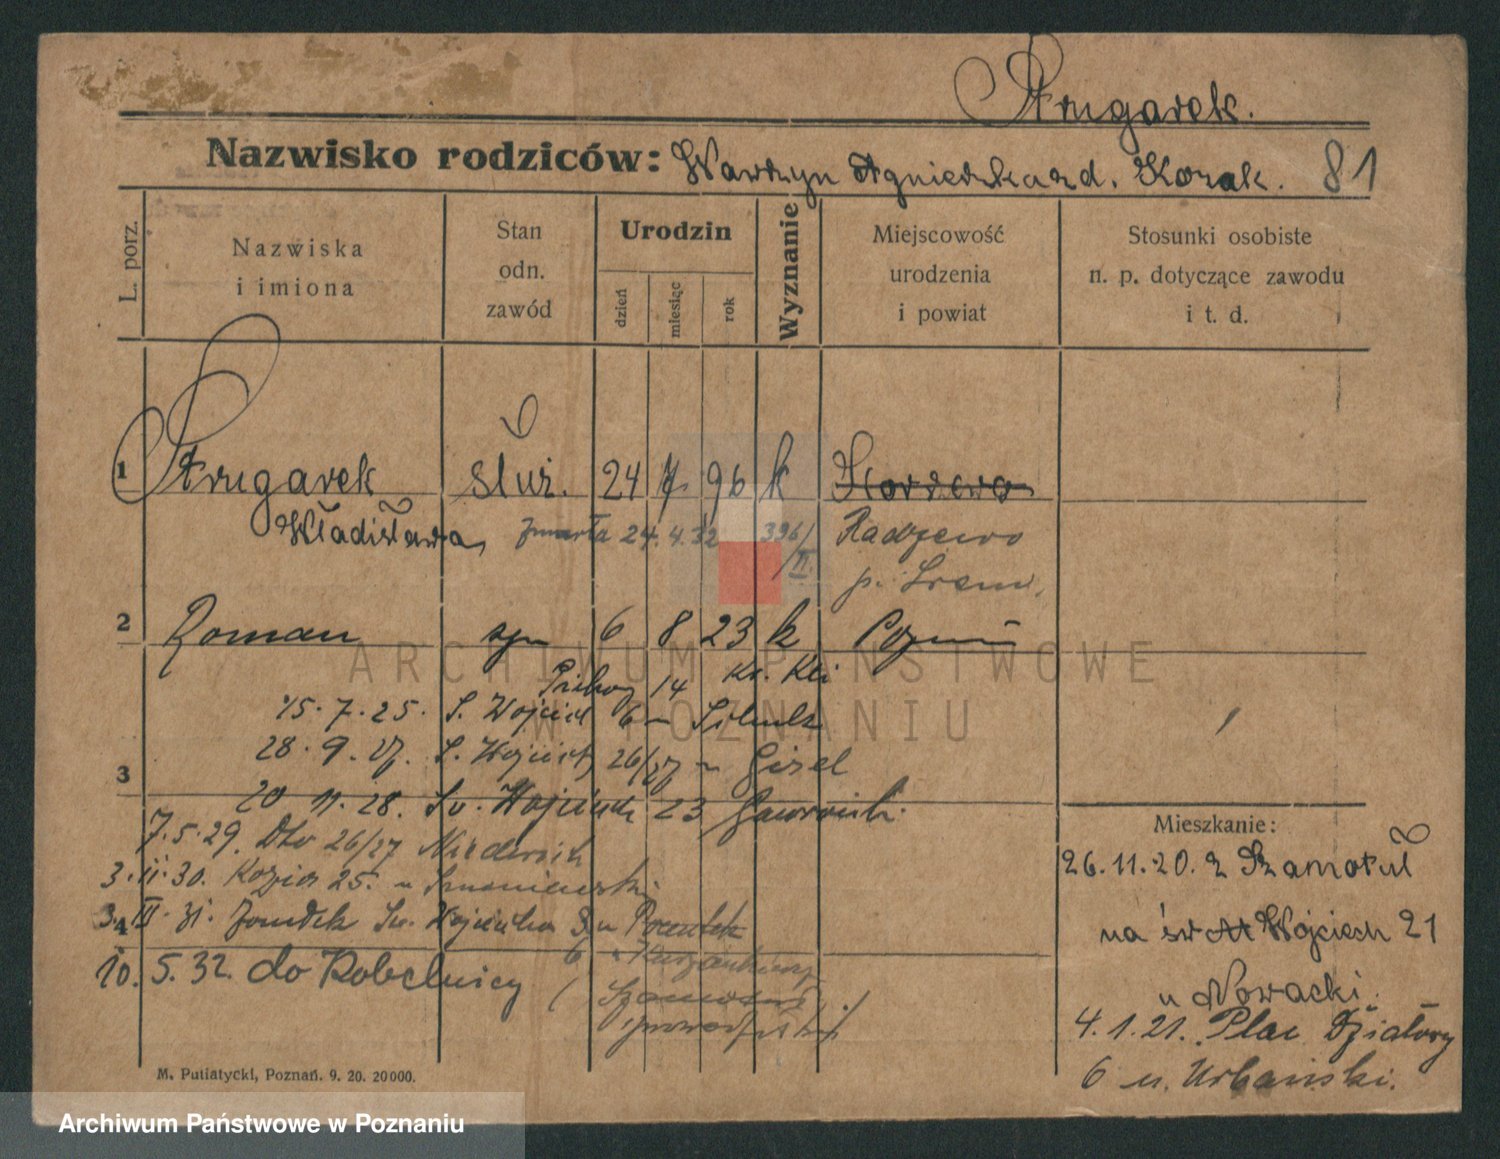 Strugarek.
Nazwisko rodziców: Wawrzyn Agnieszka zd. Kozak. 81
L. porz.
Nazwiska i imiona
Stan odn. zawód
Urodzin
dzień miesiąc rok
Wyznanie
Miejscowość urodzenia i powiat
Stosunki osobiste n. p. dotyczące zawodu i t. d.
1 Strugarek służ. 24 7. 96 k
Władisława zmarła 24. 4. 32 396/II. Radzewo
p. Śrem.
2 Roman syn 6 8 23 k Poznań
ARCHIWUM PAŃSTWOWE
W POZNANIU
14
15. 7. 25. S. Wojciech 6
28. 9. 27. S. Wojciech 26/27 Gizel
3
20 11. 28. Św. Wojciech 23
7. 5. 29. Dto 26/27
3. II. 30. Kozia 25.
4
3. III. 31. Św. Wojciecha
10. 5. 32. do Kobelnicy
Mieszkanie:
26. 11. 20. z Szamotuł
na św Wojciech 21
u Nowacki.
4. 1. 21. Plac Działowy
6 u. Urbański.
M. Putiatycki, Poznań. 9. 20. 20000.
Archiwum Państwowe w Poznaniu